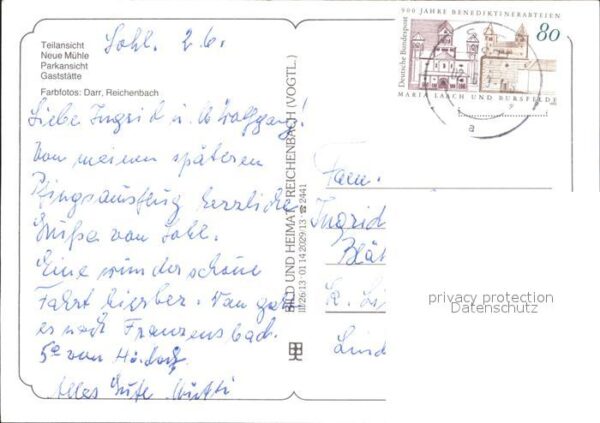 Teilansicht
Neue Mühle
Parkansicht
Gaststätte
Farbfotos: Darr, Reichenbach
Sohl. 2.6.
Liebe Ingrid u. Wolfgang!
Von meinem späteren
Pfingsausflug herzliche
Grüße von Sohl.
Eine wunderschöne
Fahrt hierher. Von
es nach Franzensbad.
von
Alles Gute Mutti
BILD UND HEIMAT REICHENBACH (VOGTL.)
III/26/13 · 01 14 2029/13 · ☎ 2441
900 JAHRE BENEDIKTINERABTEIEN
Deutsche Bundespost
80
MARIA LAACH UND BURSFELDE
a
Fam.
Ingrid
Blät
Lind
privacy protection
Datenschutz